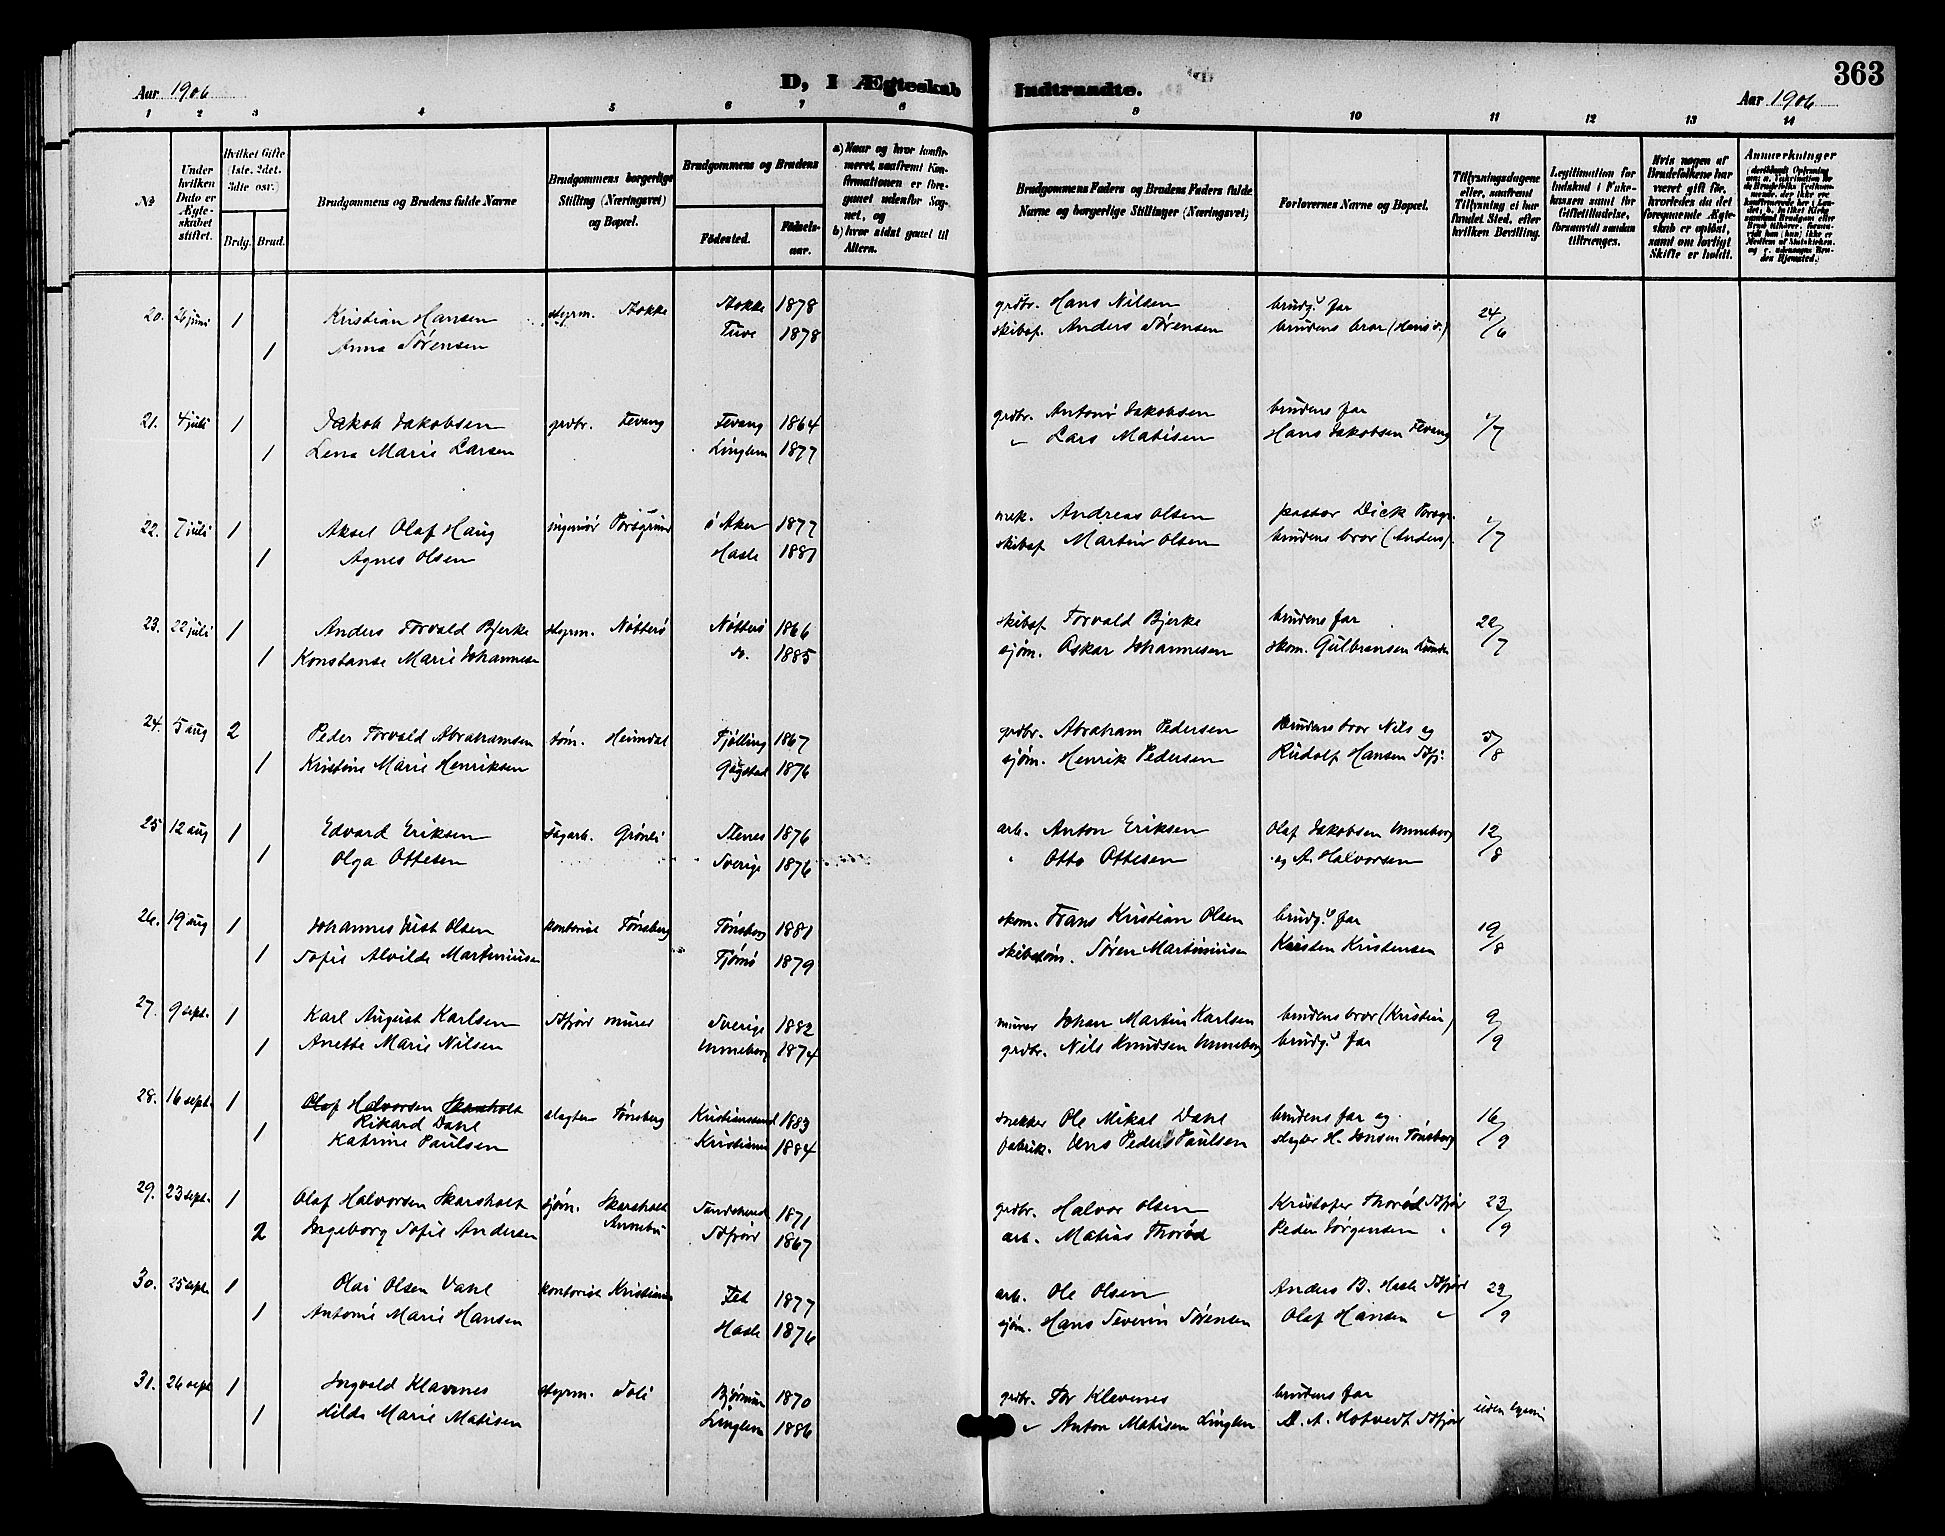 363
Aar 1906 D, I Ægteskab Indtraadte. Aar 1906
1 2 3 4 5 6 7 8 9 10 11 12 13 14
№
Under hvilken Dato er Ægteskabet stiftet.
Hvilket Gifte (1ste, 2det, 3dte osv.)
Brdg. Brud.
Brudgommens og Brudens fulde Navne
Brudgommens borgerlige Stilling (Næringsvei) og Bopæl.
Brudgommens og Brudens
Fødested. Fødselsaar.
a) Naar og hvor konfirmeret, saafremt Konfirmationen er foregaaet udenfor Sognet, og
b) hvor sidst gaaet til Alters.
Brudgommens Faders og Brudens Faders fulde Navne og borgerlige Stillinger (Næringsvei)
Forlovernes Navne og Bopæl.
Tillysningsdagene eller, saafremt Tillysning ei har fundet Sted, efter hvilken Bevilling.
Legitimation for Indskud i Enkekassen samt for Giftetilladelse, forsaavidt saadan tiltrænges.
Hvis nogen af Brudefolkene har været gift før, hvorledes da det foregaaende Ægteskab er opløst, samt om lovligt Skifte er holdt.
Anmærkninger
20. 26 juni 1 Kristian Hansen styrm. Stokke Stokke 1878 grdbr. Hans Nilsen brudg.s far 24/6
1 Anna Sørensen Tuve 1878 skibsf. Anders Sørensen brudens bror (Hans S.)
21. 4 juli 1 Jakob Jakobsen grdbr. Fevang Fevang 1864 grdbr. Antoni Jakobsen brudens far 1/7
1 Lena Marie Larsen Linglem 1877 " Lars Matisen Hans Jakobsen Fevang
22. 7 juli 1 Aksel Olaf Haug ingeniør Porsgrund ø Aker 1877 mek. Andreas Olsen pastor Dick Porsgr. 1/7
1 Agnes Olsen Hasle 1881 skibsf. Martin Olsen brudens bror (Anders).
23. 22 juli 1 Anders Torvald Bjerke styrm. Nøtterø Nøtterø 1866 skibsf. Torvald Bjerke brudens far 22/7
1 Konstanse Marie Johannesen do. 1885 sjøm. Oskar Johannesen skom. Gulbransen Lunden
24. 5 aug 2 Peder Torvald Abrahamsen tøm. Heimdal Tjølling 1867 grdbr. Abraham Pedersen Brudens bror Nils og 5/8
1 Kristine Marie Henriksen Gogstad 1876 sjøm. Henrik Pedersen Rudolf Hansen Sfj.
25 12 aug 1 Edvard Eriksen sagarb. Grønli Stenes 1876 arb. Anton Eriksen Olaf Jakobsen Unneberg 12/8
1 Olga Ottesen Sverige 1876 " Otto Ottesen og A. Halvorsen
26. 19 aug 1 Johannes Just Olsen kontorist Tønsberg Tønsberg 1881 skom. Frans Kristian Olsen brudg.s far 19/8
1 Sofie Alvilde Martiniusen Tjømø 1879 skibstøm. Søren Martiniusen Karsten Kristensen
27. 9 sept. 1 Karl August Karlsen Sfjord murer Sverige 1882 murer Johan Martin Karlsen brudens bror (Kristian) 9/9
1 Anette Marie Nilsen Unneberg 1874 grdbr. Nils Knudsen Unneberg brudg.s far
28. 16 sept. 1 Olaf Halvorsen Skarsholt
Rikard Dahl slagter Tønsberg Kristiansund 1883 snekker Ole Mikal Dahl brudens far og 16/9
1 Katrine Paulsen Kristiania 1884 fabrik. Jens Peder Paulsen slagter H. Jonsen Tønsberg
29. 23 sept. 1 Olaf Halvorsen Skarsholt sjøm. Skarsholt Sandeherred 1871 grdbr. Halvor Olsen Kristofer Thorød Sfjor 23/9
2 Ingeborg Sofie Andersen Annebu Sfjord 1867 arb. Matias Thorød Peder Jørgensen "
30. 25 sept. 1 Olai Olsen Vahl kontorist Kristiania Fet 1877 arb. Ole Olsen Anders B. Hasle Sfjord 23/9
1 Antonie Marie Hansen Hasle 1876 sjøm. Hans Severin Sørensen Olaf Hansen "
31. 26 sept 1 Ingvald Klavenes styrm. Soli 1870 grdbr. Tor Klavenes brudens far
1 Hilda Marie Matisen Linglem 1886 " Anton Matisen Linglem A. Hotvedt Sfjord uden